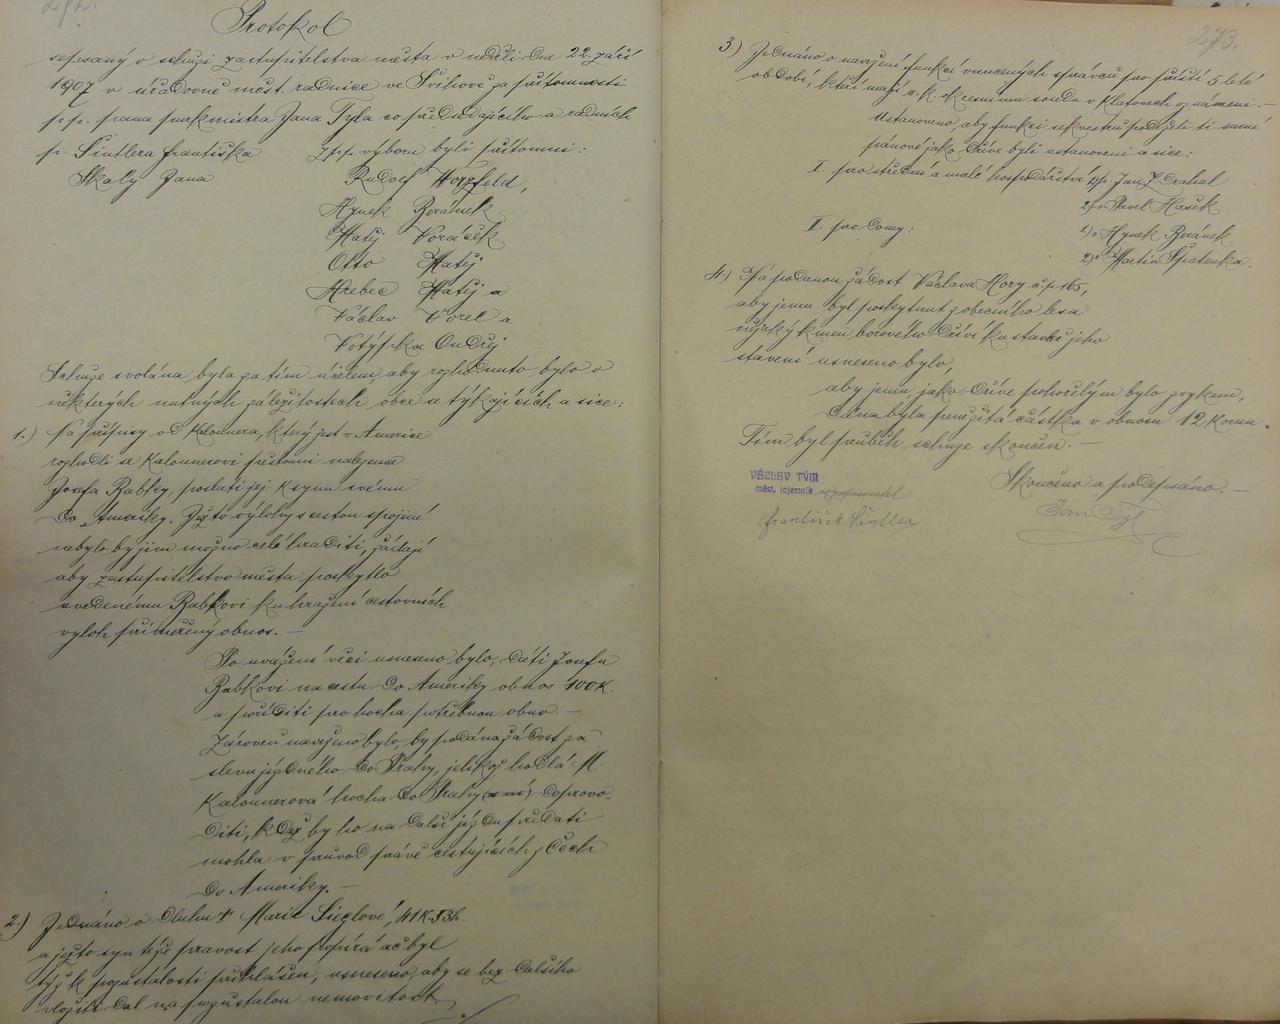 Protokol
sepsaný o schuzi zastupitelstva města v neděli dne 22. září
1907 v úřadovně měst. radnice ve Švihově za přítomnosti
p.p. pana purkmistra Jana Týla co předsedajícího a radních
p. Šintlera Františka z pp. výboru byli přítomni:
Skaly Jana Rudolf Herzfeld,
Hynek Beránek
Matěj Voráček
Otto Matěj
Hrebec Matěj a
Václav Vorel a
Votýpka Ondřej
Schuze svolána byla za tím účelem, aby rozhodnuto bylo o
některých nutných záležitostech obce se týkajících a sice:
1.) Na přípisy od Kalounera, který jest v Americe
rozhodli se Kalounerovi přítomni nalezence
Josefa Babky, poslati jej k synu svému
do Ameriky. Ježto výlohy s cestou spojené
nebylo by jim možno celé hraditi, žádají
aby zastupitelstvo města poskytlo
uvedenému Babkovi ku hražení cestovních
vyloh přiměřený obnos. —
Po uvážení věci usneseno bylo, dáti Josefu
Babkovi na cestu do Ameriky obnos 100 K.
a poříditi pro hocha potřebnou obuv. —
Zároveň navrženo bylo, by podána žádost za
slevu jízdného do Prahy, jelikož hodlá M.
Kalounerová hocha do Prahy doprovo-
diti, kdež by ho na další jízdu předati
mohla v průvod právě cestujících z Čech
do Ameriky. —
2.) Jednáno o dluhu † Marie Sieglové, 41 K. 53 h.
a ježto syn téže pravost jeho popírá ač byl
týž k pozustalosti přihlášen, usneseno, aby se bez dalšího
vložiti dal na pozustalou nemovitost.
273.
3.) Jednáno o navržení funkcí vnucených správcu pro příští 5 leté
období, kteří mají c. k. okresnímu soudu v Klatovech oznámeni. —
Ustanoveno, aby funkci sekvestru podrželi ti samí
pánové jako dříve byli ustanoveni a sice:
I. pro střední a malé hospodářství 1) p. Jan Z. Drahal
2) " Pavel Hašek
II. pro domy: 1) " Hynek Beránek
2) " Martin Špatenka.
4.) Na podanou žádost Václava Hory č.p. 165,
aby jemu byl poskytnut z obecního lesa
nějaký kmen borového dříví ku stavbě jeho
stavení usneseno bylo,
aby jemu jako dříve pohořelým bylo zvykem,
dána byla peněžitá částka v obnosu 12 korun.
Tím byl průběh schuze skončen. —
Skončeno a podepsáno. —
VÁCLAV TÝM
měst. tajemník
František Šintler
Jan Týl